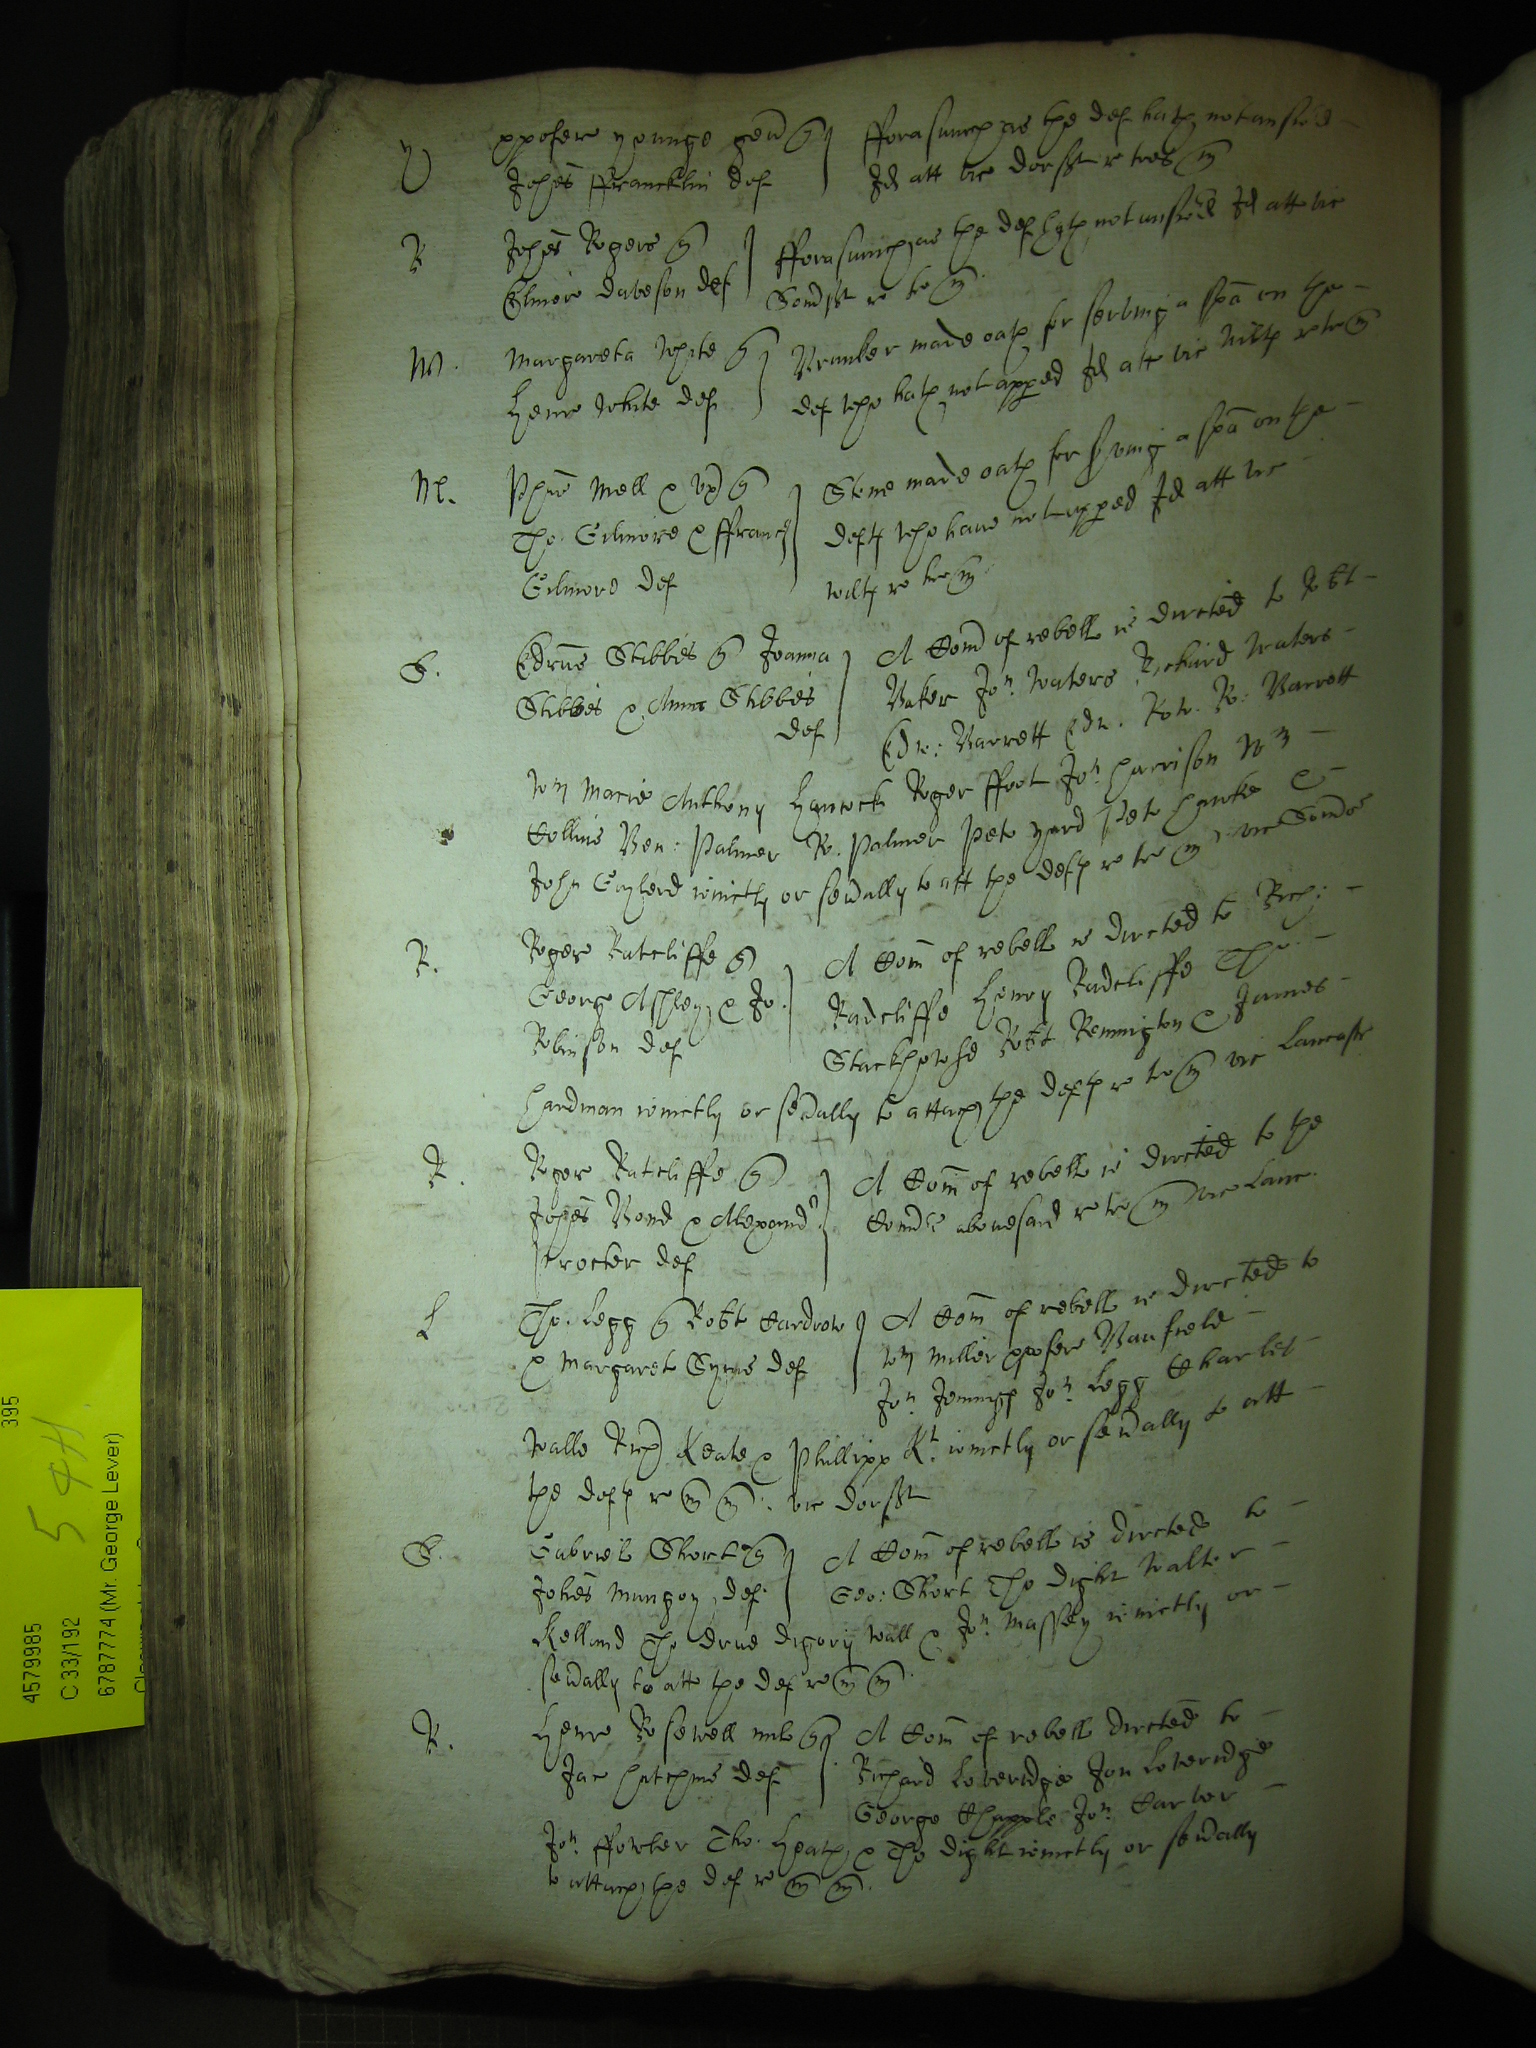 Y xpofere younge gen q Forasmuch as the def hath not answ̃d
Johẽs Francklin def Id att vic Dorsst r tres m
R Johẽs Rogers q Forasmuch as the def hath not answ̃d Id att vic
Elinore Daveson def Somsst re tre m
W. Margareta White q Brunker made oath for serving a spã on the
Henric White def def who hath not apped Id att vic Wilts re tre m
M. Phũs Mell & ux q Stone made oath for serving a spã on the
Tho: Gilmore & Franc defts who have not apped Id att vic
Gilmore def wilts re tre m
S. Edrũs Stibbes q Joanna A Com̃ of rebell is directed to Robt
Stibbes & Anne Stibbes Baker Jon Waters Richard Waters
def Edw: Barrett Edw. Row. Ro: Barrett
Wm Marie Anthony Hancock Roger Foot Jon Harrison Wm
Collins Ben: Palmer Ro. Palmer Peto yard Peto Hawke &
John Gaylerd iointly or sev̄ally to att the defts re tre m vic Somss
R. Rogere Ratcliffe q A Com̃ of rebell is directed to Rich:
George Ashley & Jo. Radcliffe Henry Radcliffe Tho.
Robinson def Stackhowse Robt Remington & James
Hardman iointly or sev̄ally to attach the defts re tre m vic Lancastr
R. Roger Ratcliffe q A Com̃ of rebell is directed to the
Johẽs Bond & Alexand Com̃rs abovesaid re tre m vic Lanc.
Procter def
L Tho. Legg q Robt Cardrow A Com̃ of rebell is directed to
& Margaret Syms def Wm Miller xpofere Banfield
Jon Jennings Jon Legg Charles
Walle Rich Keate & Phillipp Kt. iointly or sev̄ally to att
the defts re m m. vic Dorsst
S. Gabriel Short q A Com̃ of rebell is directed to
Johẽs Mungey def Geo: Short Tho Dight Walter
Kelland Tho Drue Digory Wall & Jon Massey iointly or
sev̄ally to att the def re m m.
R. Henric Rosewell mil q A Com̃ of rebell directed to
Jac Hutchins def Richard Loveridge Jon Loveridge
George Chapple Jon Carter
Jon Fowler Tho. Heath & Tho Dight iointly or sev̄ally
to attach the def re m m.
395
54H
4579985
C 33/192
6787774 (Mr. George Lever)